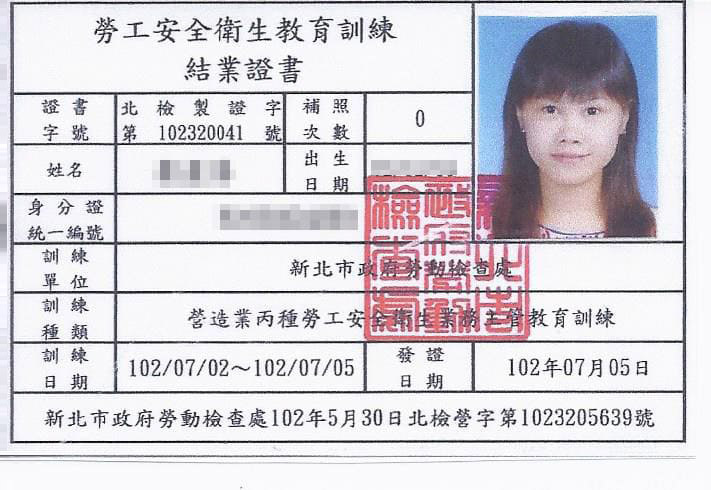 勞工安全衛生教育訓練
結業證書
證書字號 北檢製證字第 102320041 號 補照次數 0
姓名 出生日期
身分證統一編號
訓練單位 新北市政府勞動檢查處
訓練種類 營造業丙種勞工安全衛生業務主管教育訓練
訓練日期 102/07/02～102/07/05 發證日期 102年07月05日
新北市政府勞動檢查處102年5月30日北檢營字第1023205639號